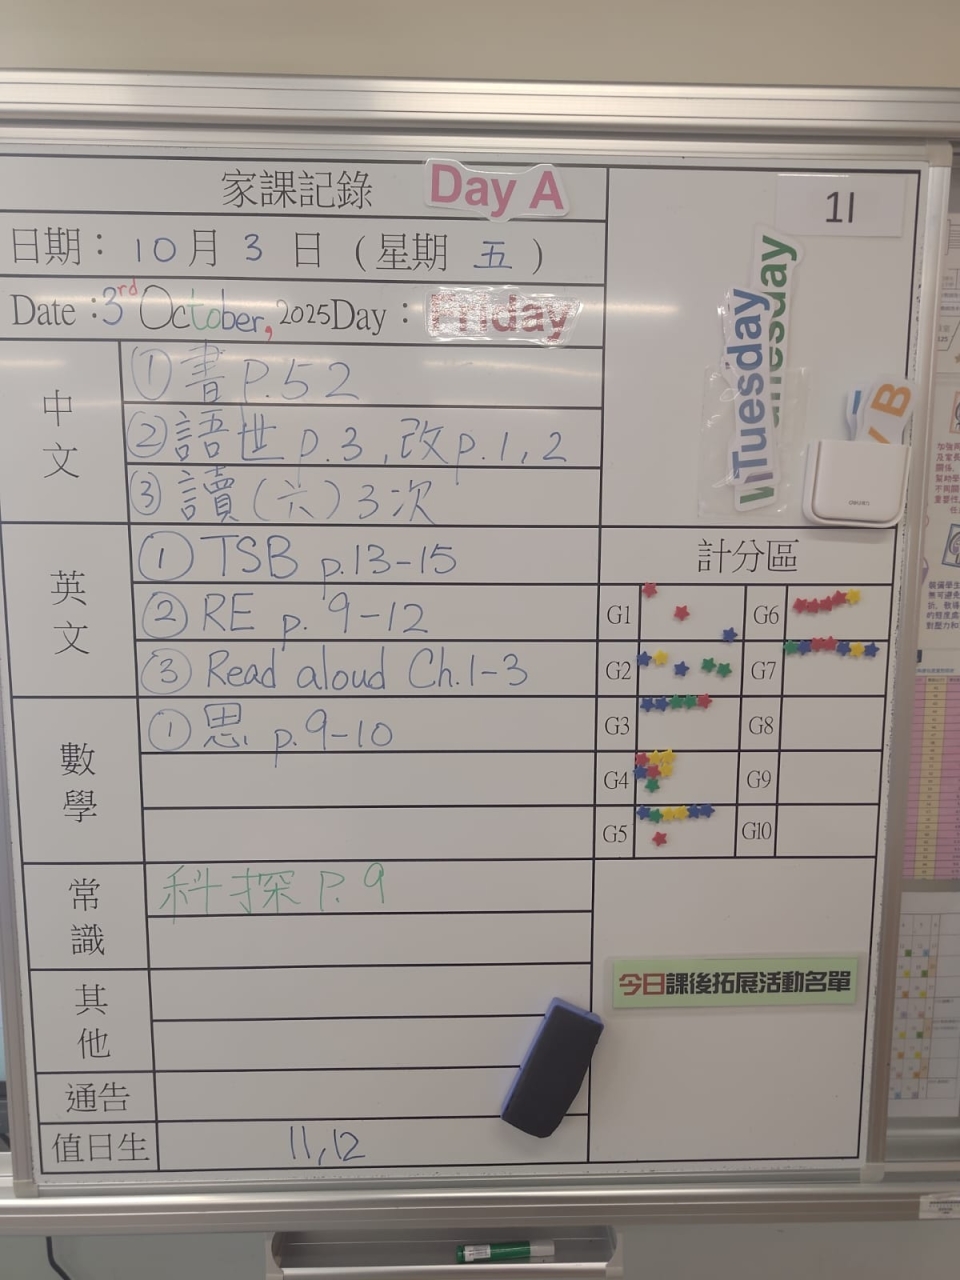 家課記錄 Day A
1I
日期：10月3日（星期五）
Date：3rd October, 2025 Day：Friday
Tuesday
B
中文
①書P.52
②語世p.3,改p.1,2
③讀(六)3次
英文
①TSB p.13-15
②RE p.9-12
③Read aloud Ch.1-3
計分區
G1 G6
G2 G7
G3 G8
G4 G9
G5 G10
數學
①思p.9-10
常識
科探P.9
其他
今日課後拓展活動名單
通告
值日生 11,12